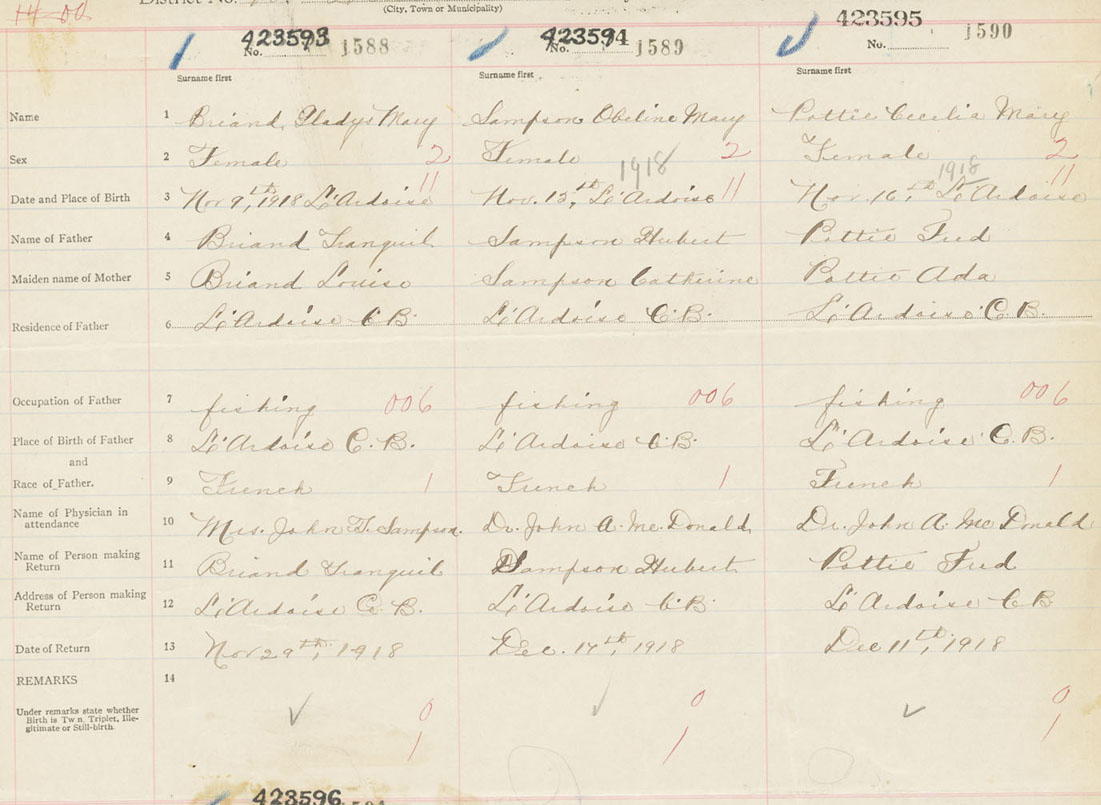 14-00 District No.
(City, Town or Municipality)
423593 1588 423594 1589 423595 1590
No. No. No.
Surname first Surname first Surname first
Name 1 Briand, Gladys Mary Sampson Obeline Mary Pottie Cecilia Mary
Sex 2 Female 2 Female 1918 2 Female 1918 2
Date and Place of Birth 3 Nov 9,th 1918 L'Ardoise 11 Nov. 13,th L'Ardoise 11 Nov. 16,th L'Ardoise 11
Name of Father 4 Briand Tranquil Sampson Hubert Pottie Fred
Maiden name of Mother 5 Briand Louise Sampson Catherine Pottie Ada
Residence of Father 6 L'Ardoise C.B. L'Ardoise C.B. L'Ardoise C.B.
Occupation of Father 7 fishing 006 fishing 006 fishing 006
Place of Birth of Father 8 L'Ardoise C.B. L'Ardoise C.B. L'Ardoise C.B.
and
Race of Father. 9 French 1 French 1 French 1
Name of Physician in attendance 10 Mrs. John T. Sampson. Dr. John A. Mc. Donald Dr. John A. Mc Donald
Name of Person making Return 11 Briand Tranquil Sampson Hubert Pottie Fred
Address of Person making Return 12 L'Ardoise C.B. L'Ardoise C.B. L'Ardoise C.B
Date of Return 13 Nov 29th, 1918 Dec. 14th, 1918 Dec 11th, 1918
REMARKS 14
Under remarks state whether
Birth is Twin, Triplet, Ille-
gitimate or Still-birth.
0 0 0
1 1 1
423596